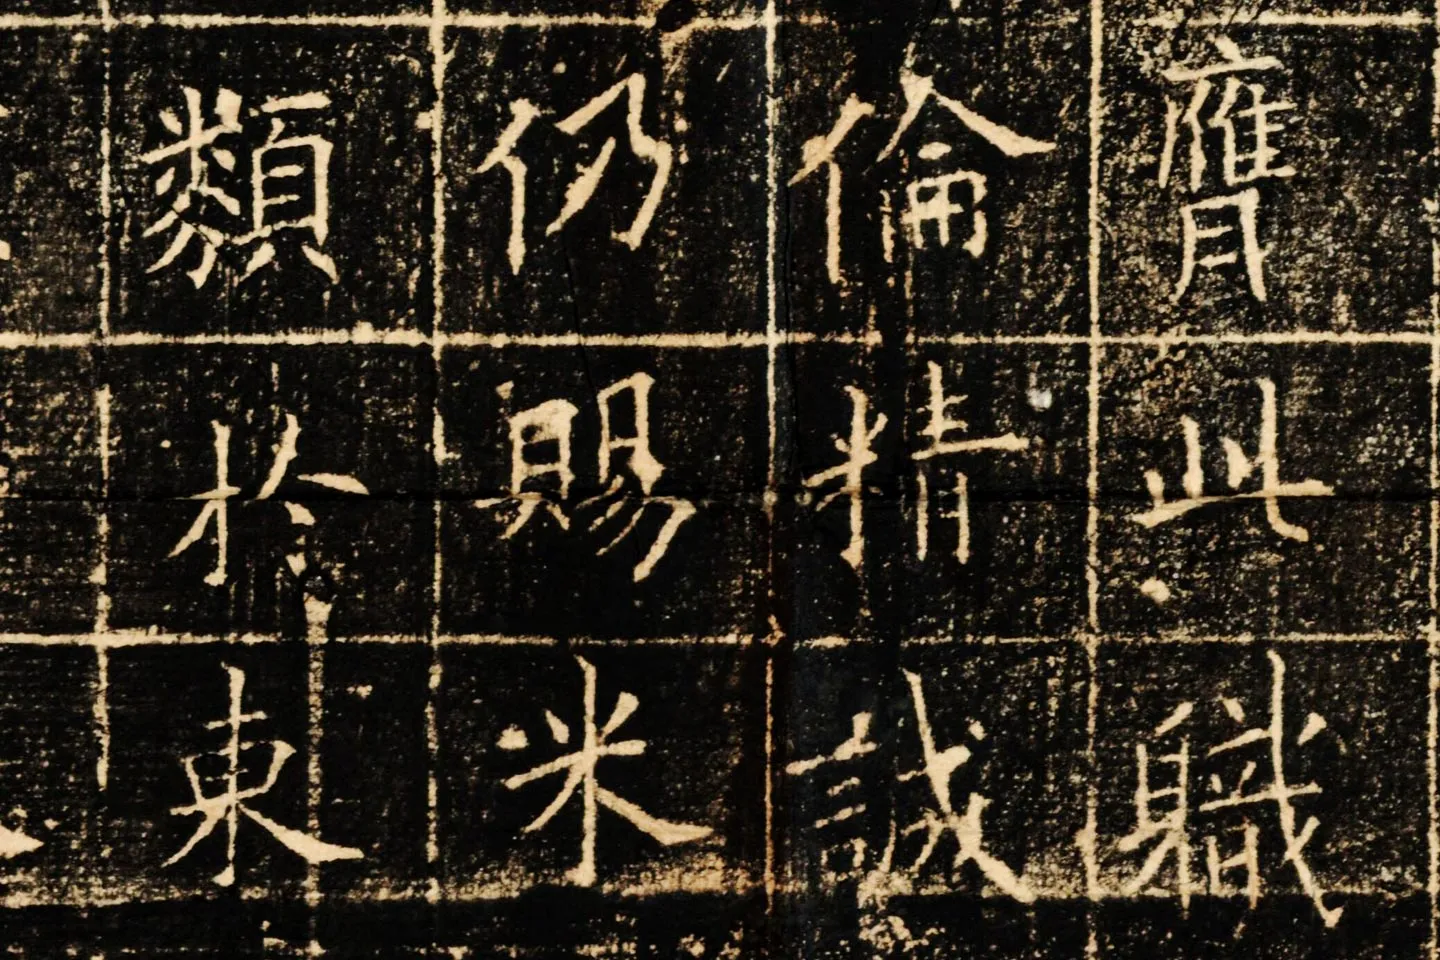 膺此軄
倫精誠
仍賜米
類於東